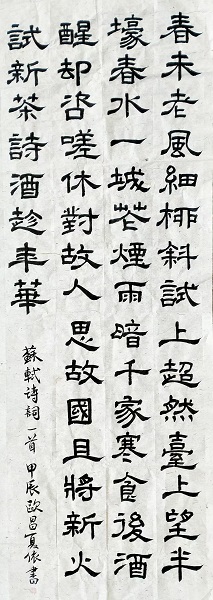 春未老風細柳斜試上超然臺上望半
壕春水一城花煙雨暗千家寒食後酒
醒却咨嗟休對故人思故國且將新火
試新茶詩酒趁年華
蘇軾诗词一首 甲辰欧昌夏依書